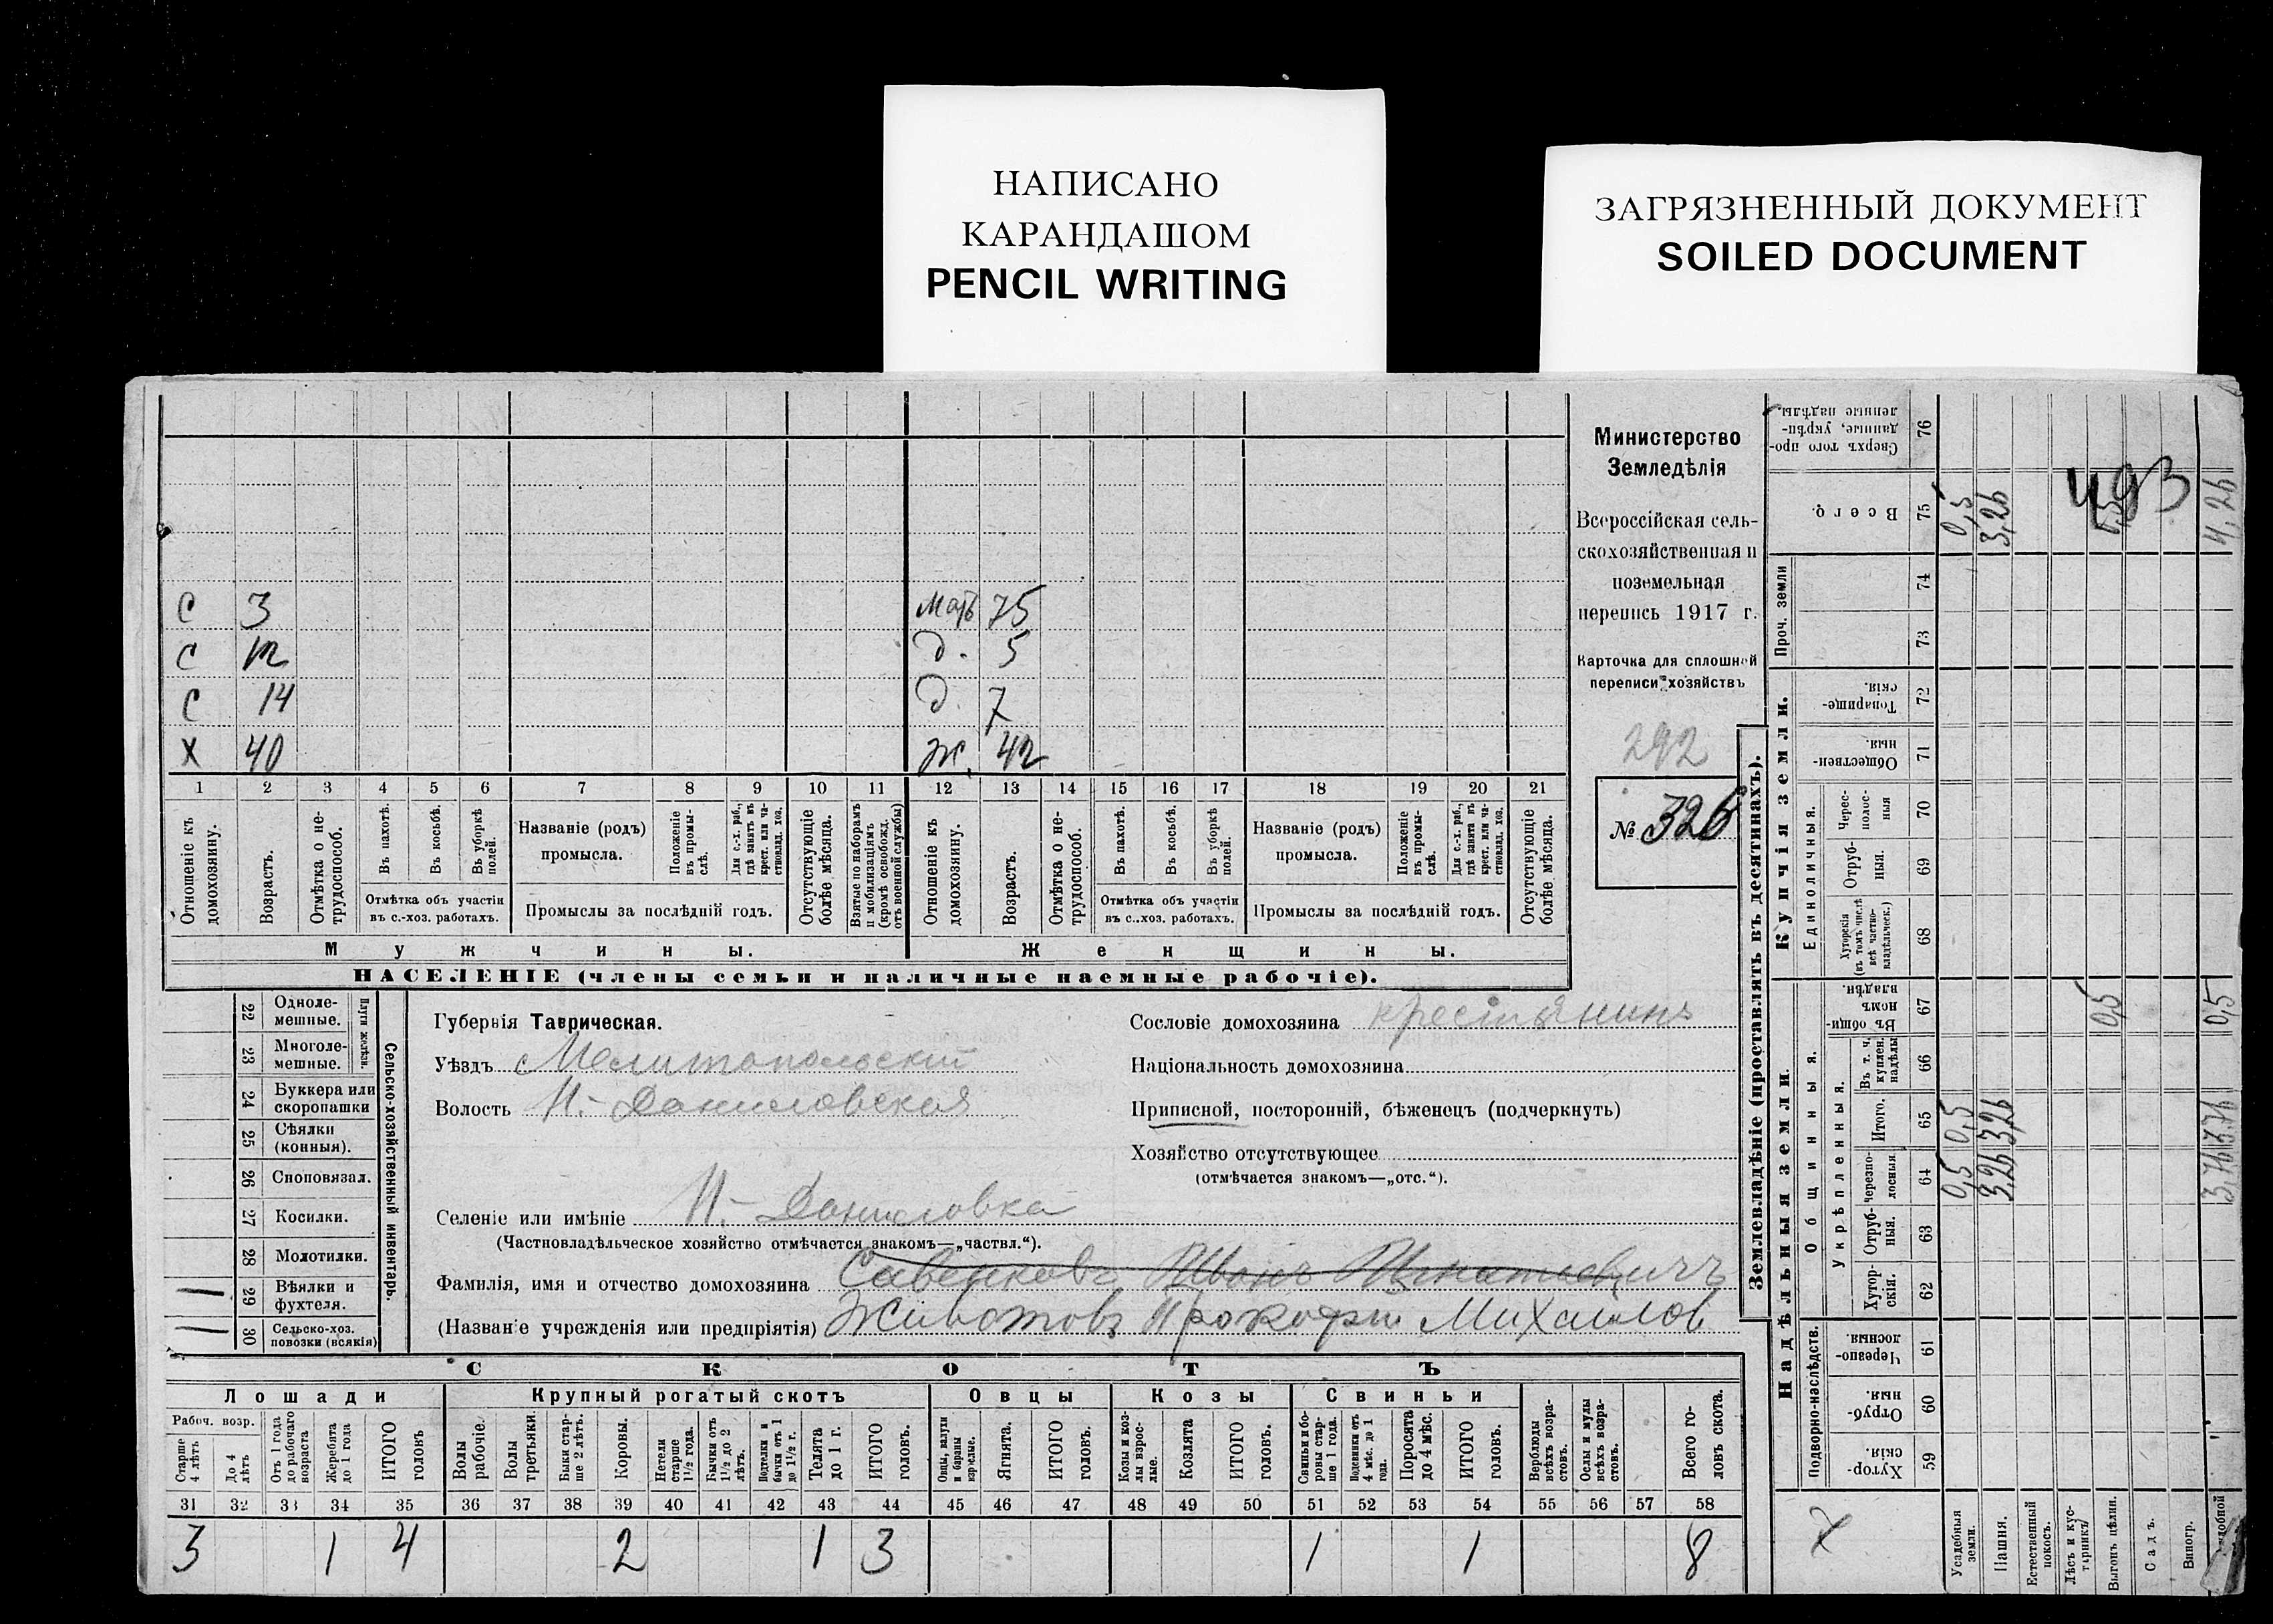 НАПИСАНО
КАРАНДАШОМ
PENCIL WRITING
ЗАГРЯЗНЕННЫЙ ДОКУМЕНТ
SOILED DOCUMENT
С 3 мать 75
С 12 д. 5
С 14 д. 7
Х 40 ж. 42
1 2 3 4 5 6 7 8 9 10 11 12 13 14 15 16 17 18 19 20 21
Отношеніе къ домохозяину.
Возрастъ.
Отмѣтка о нетрудоспособ.
Въ пахотѣ.
Въ косьбѣ.
Въ уборкѣ полей.
Отмѣтка объ участіи въ с.-хоз. работахъ.
Названіе (родъ) промысла.
Положеніе въ промыслѣ.
Для с.-х. раб., гдѣ занятъ въ крест. или частновлад. хоз.
Промыслы за послѣдній годъ.
Отсутствующіе болѣе мѣсяца.
Взятые по наборамъ и мобилизаціямъ (кромѣ освобожд. отъ военной службы)
Отношеніе къ домохозяину.
Возрастъ.
Отмѣтка о нетрудоспособ.
Въ пахотѣ.
Въ косьбѣ.
Въ уборкѣ полей.
Отмѣтка объ участіи въ с.-хоз. работахъ.
Названіе (родъ) промысла.
Положеніе въ промыслѣ.
Для с.-х. раб., гдѣ занята въ крест. или частновлад. хоз.
Промыслы за послѣдній годъ.
Отсутствующіе болѣе мѣсяца.
Мужчины.
Женщины.
НАСЕЛЕНІЕ (члены семьи и наличные наемные рабочіе).
Министерство
Земледѣлія
Всероссійская сель-
скохозяйственная и
поземельная
перепись 1917 г.
Карточка для сплошной
переписи хозяйствъ
292
№ 326
22 Одноле-мешные.
23 Многоле-мешные.
Плуги желѣзн.
24 Буккера или скоропашки
25 Сѣялки (конныя).
26 Сноповязал.
27 Косилки.
28 Молотилки.
29 Вѣялки и фухтеля.
30 Сельско-хоз. повозки (всякія)
Сельско-хозяйственный инвентарь.
Губернія Таврическая.
Уѣздъ Мелитопольскій
Волость Н.-Даниловская
Селеніе или имѣніе Н.-Даниловка
(Частновладѣльческое хозяйство отмѣчается знакомъ—„частвл.“).
Фамилія, имя и отчество домохозяина Савенковъ Иванъ Игнатьевичъ
(Названіе учрежденія или предпріятія) Животовъ Прокофій Михайлов
Сословіе домохозяина крестьянинъ
Національность домохозяина
Приписной, посторонній, бѣженецъ (подчеркнуть)
Хозяйство отсутствующее
(отмѣчается знакомъ—„отс.“).
СКОТЪ
Лошади Крупный рогатый скотъ Овцы Козы Свиньи
Рабоч. возр.
Старше 4 лѣтъ
До 4 лѣтъ
Отъ 1 года до рабочаго возраста
Жеребята до 1 года
ИТОГО головъ
Волы рабочіе.
Волы третьяки.
Быки старше 2 лѣтъ.
Коровы.
Нетели старше 1½ года.
Бычки отъ 1½ до 2 лѣтъ.
Подтелки и бычки отъ 1 до 1½ г.
Телята до 1 г.
ИТОГО головъ.
Овцы, валухи и бараны взрослые.
Ягнята.
ИТОГО головъ.
Козы и козлы взрослые.
Козлята
ИТОГО головъ.
Свиньи и боровы старше 1 года.
Подсвинки отъ 4 мѣс. до 1 года.
Поросята до 4 мѣс.
ИТОГО головъ.
Верблюды всѣхъ возрастовъ.
Ослы и мулы всѣхъ возрастовъ.
Всего головъ скота.
31 32 33 34 35 36 37 38 39 40 41 42 43 44 45 46 47 48 49 50 51 52 53 54 55 56 57 58
3 1 4 2 1 3 1 1 8
Землевладѣніе (проставлять въ десятинахъ).
Сверхъ того проданные, укрѣпленные надѣлы. 76
Всего. 75 0,5 3,26 493 4,26
Проч. земли 74 73
Купчія земли.
Товарищескія. 72
Общественныя 71
Единоличныя.
Чересполосныя 70
Отрубныя. 69
Хуторскія (въ томъ числѣ всѣ частновладѣльческ.) 68
Надѣльныя земли.
Общинныя.
Въ общинномъ владѣн. 67 0,5 0,5
Укрѣпленныя.
Въ т. ч. куплен. надѣлы 66
Итого. 65 0,5 3,26 3,76
Черезполосныя. 64 0,5 3,26 3,76
Отрубныя. 63
Хуторскія. 62
Подворно-наслѣдств.
Черезполосныя. 61
Отрубныя. 60
Хуторскія. 59
Усадебныя земли.
Пашня.
Естественный покосъ.
Лѣсъ и кустарникъ
Выгонъ цѣлин.
Садъ.
Виногр.